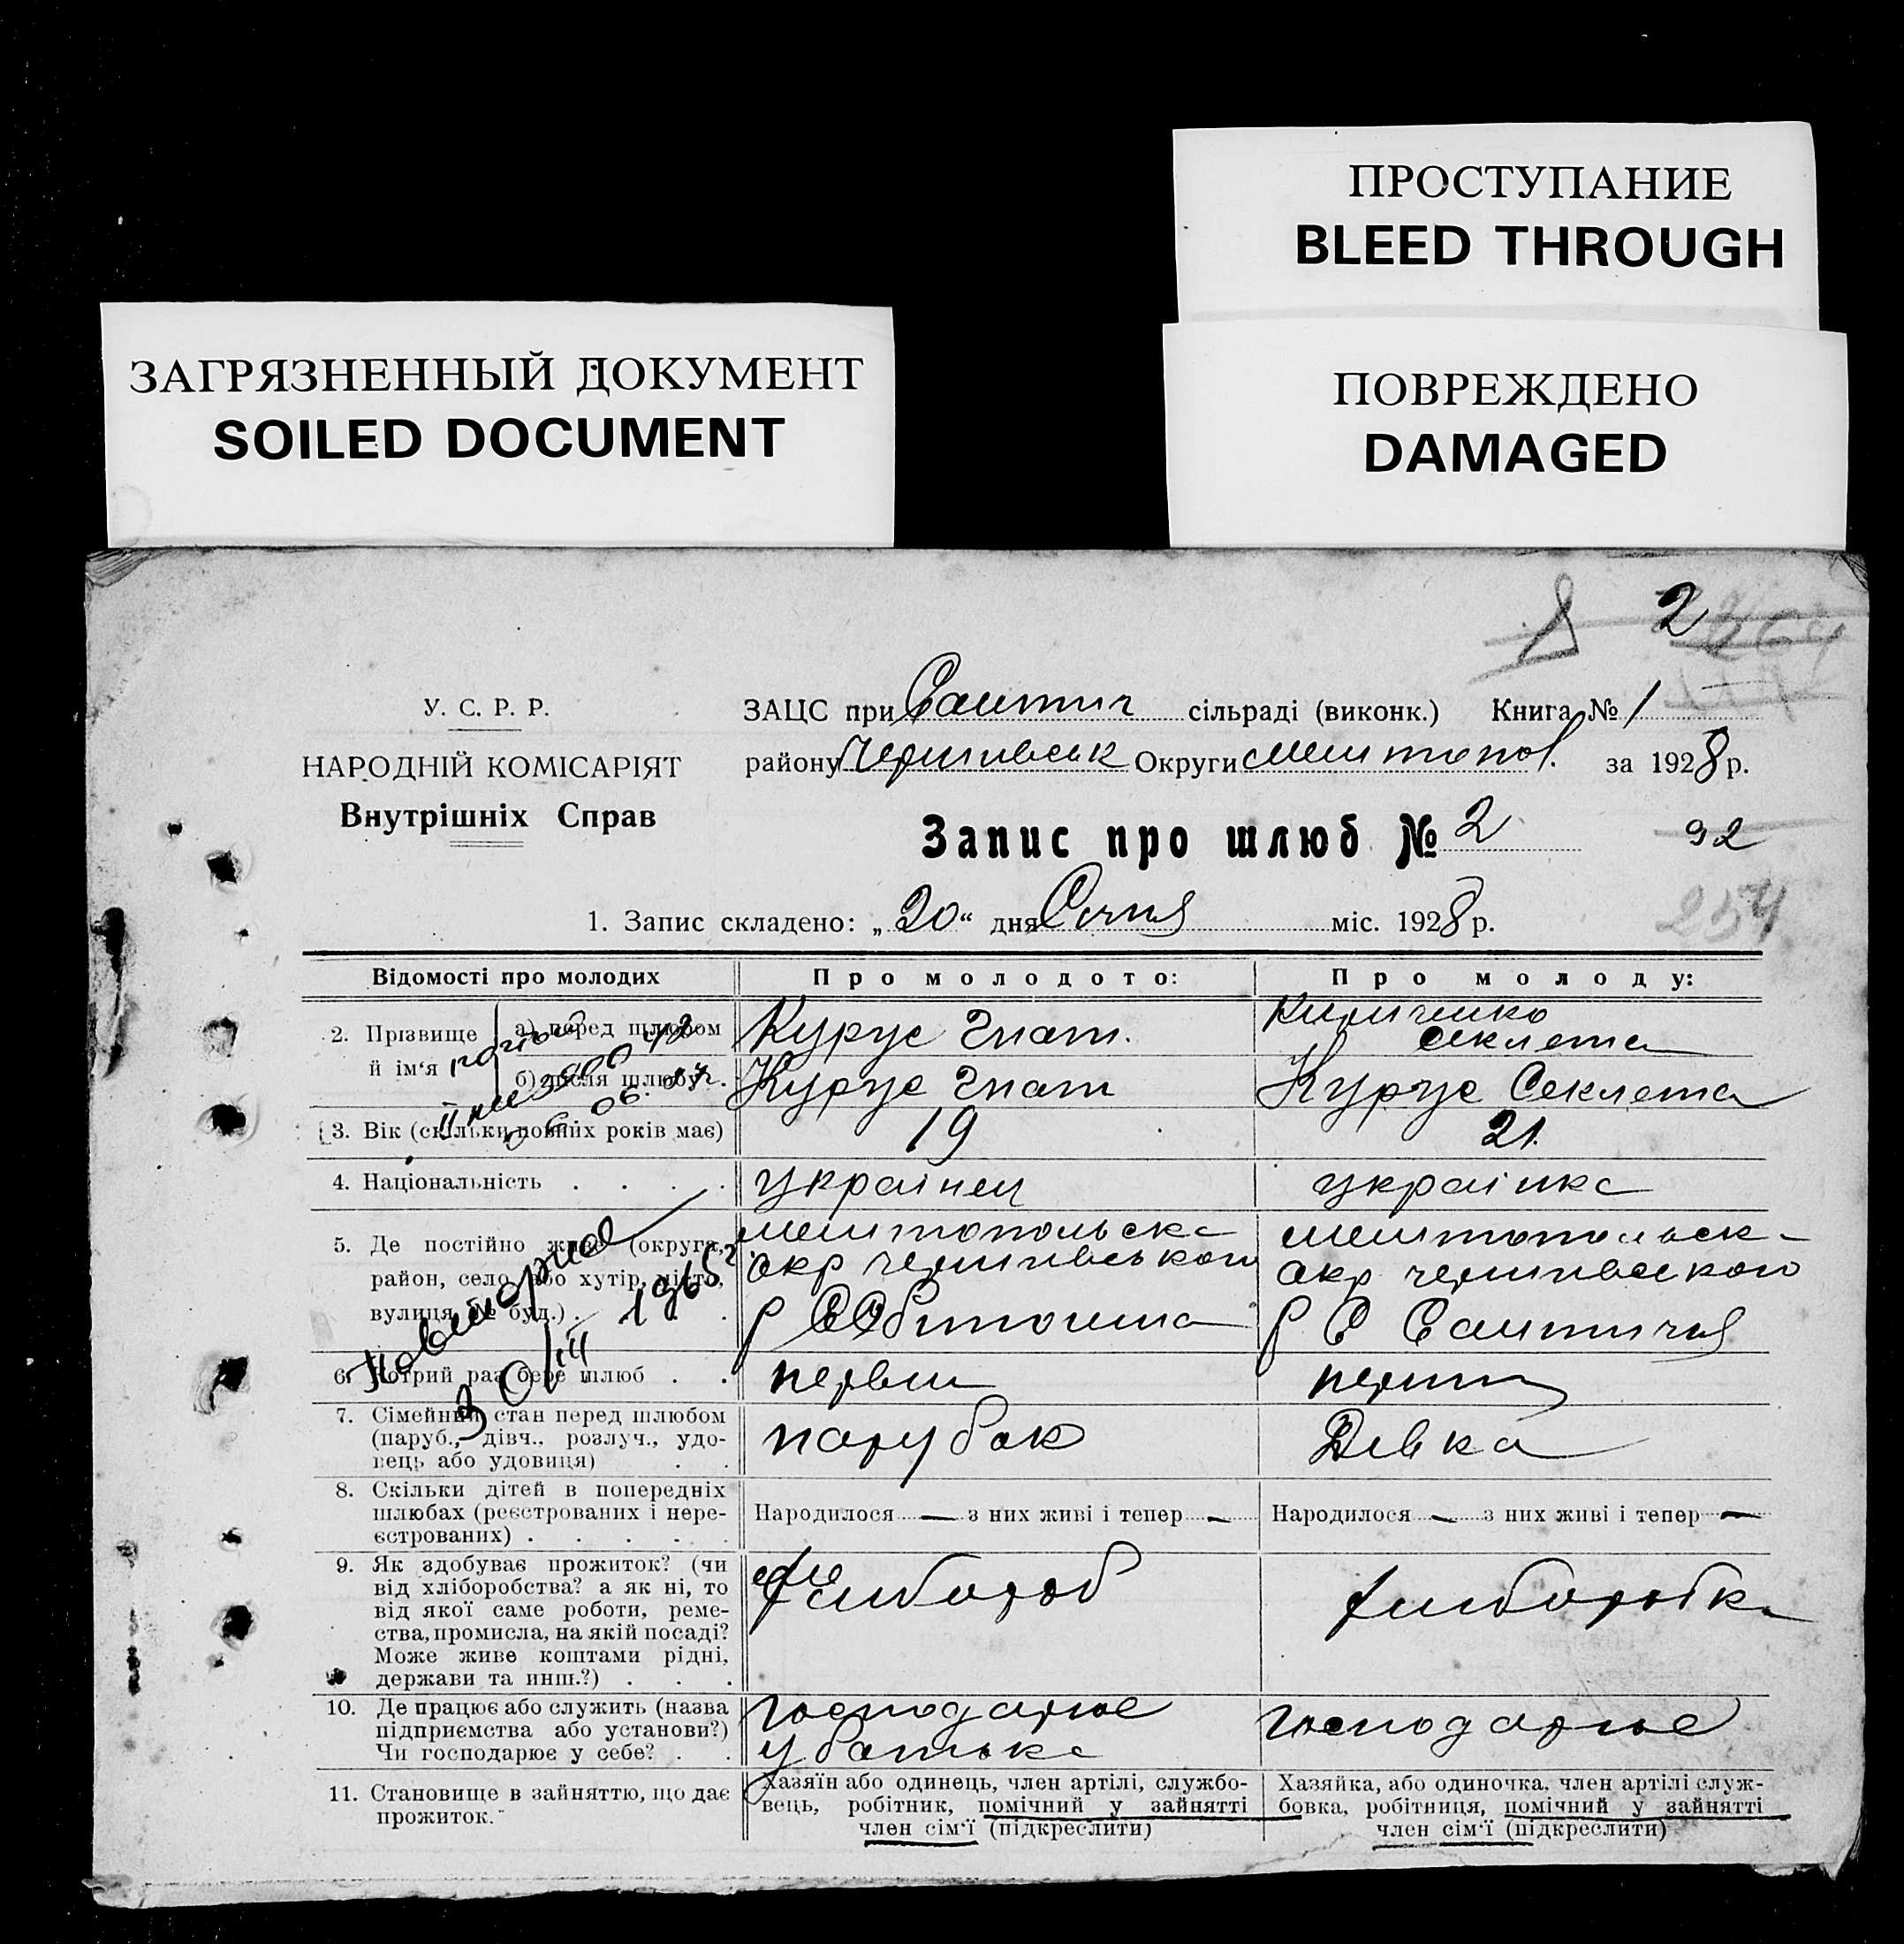 ПРОСТУПАНИЕ
BLEED THROUGH
ЗАГРЯЗНЕННЫЙ ДОКУМЕНТ
SOILED DOCUMENT
ПОВРЕЖДЕНО
DAMAGED
2
У. С. Р. Р.
НАРОДНІЙ КОМІСАРІЯТ
Внутрішніх Справ
ЗАЦС при Салтич сільраді (виконк.) Книга № 1
району Чернигівськ Округи мелитопол. за 1928 р.
Запис про шлюб № 2
92
254
1. Запис складено: „20“ дня Січня міс. 1928 р.
Відомості про молодих
Про молодого:
Про молоду:
2. Прізвище й ім'я
а) перед шлюбом
Курус Гнат.
Секлета
б) після шлюбу
Курус Гнат
Курус Секлета
3. Вік (скільки повних років має)
19
21.
4. Національність . . . .
українец
українка
5. Де постійно живе (округа,
район, село або хутір, місто,
вулиця, № буд.) . . . .
мелитопольска
окр чернигівського
р
мелитопольск
окр чернигівского
р С Салтичия
6. Котрий раз бере шлюб . .
первий
7. Сімейний стан перед шлюбом
(паруб., дівч., розлуч., удо-
вець або удовиця) . .
парубок
Дівка
8. Скільки дітей в попередніх
шлюбах (реєстрованих і нере-
єстрованих) . . . . .
Народилося — з них живі і тепер —
Народилося — з них живі і тепер —
9. Як здобуває прожиток? (чи
від хліборобства? а як ні, то
від якої саме роботи, реме-
ства, промисла, на якій посаді?
Може живе коштами рідні,
держави та инш.?) . . .
хлібороб
хліборобка
10. Де працює або служить (назва
підприємства або установи?)
Чи господарює у себе? . .
господарює
у батька
господарює
11. Становище в зайняттю, що дає
прожиток.
Хазяїн або одинець, член артілі, службо-
вець, робітник, помічний у зайнятті
член сім'ї (підкреслити)
Хазяйка, або одиночка, член артілі служ-
бовка, робітниця, помічний у зайнятті
член сім'ї (підкреслити)
Повторно
30/III 1965 г